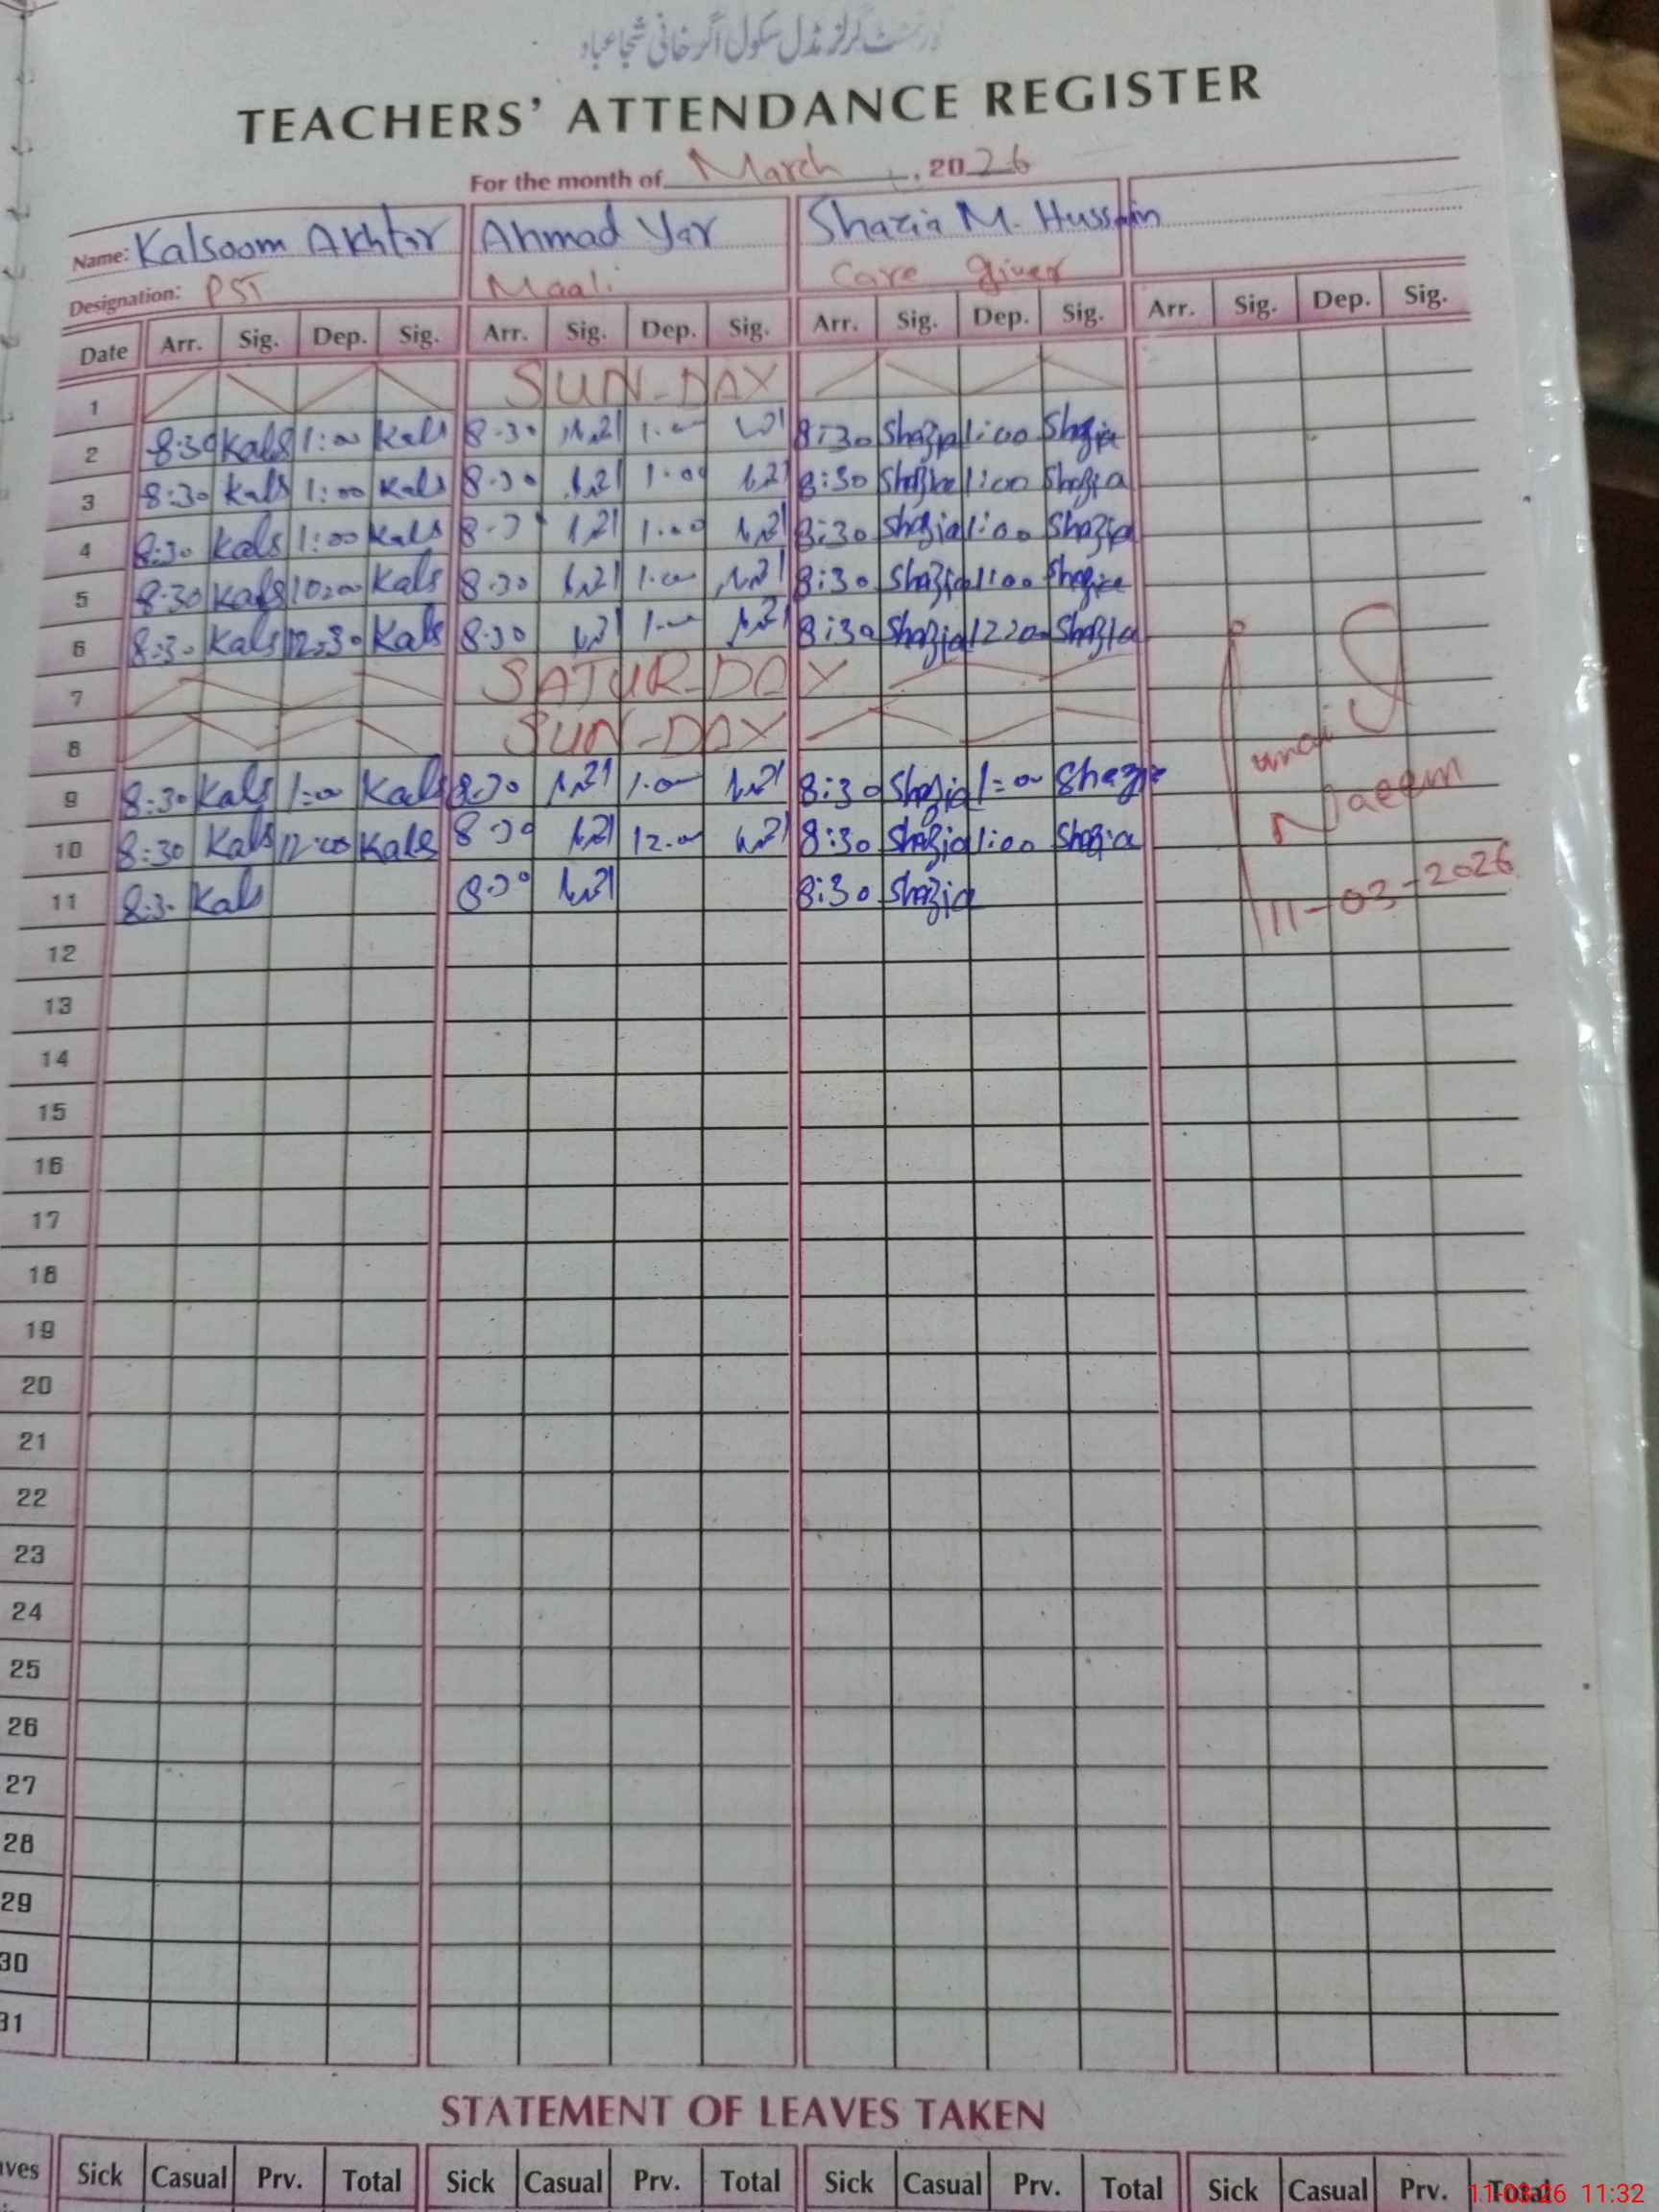 گورنمنٹ گرلز مڈل سکول اگر خانی شجاعباد
TEACHERS' ATTENDANCE REGISTER
For the month of March, 2026
Name: Kalsoom Akhtar Ahmad Yar Shazia M. Hussain
Designation: PST Maali Care giver
Date Arr. Sig. Dep. Sig. Arr. Sig. Dep. Sig. Arr. Sig. Dep. Sig. Arr. Sig. Dep. Sig.
1 SUN-DAY
2 8:30 Kals 1:00 Kals 8-30 1.00 8:30 Shazia 1:00 Shazia
3 8:30 Kals 1:00 Kals 8-30 1.00 8:30 Shazia 1:00 Shazia
4 8:30 Kals 1:00 Kals 1.00 8:30 Shazia 1:00 Shazia
5 8:30 Kals 10:00 Kals 8-30 1.00 8:30 Shazia 1:00 Shazia
6 8:30 Kals 12:30 Kals 8-30 1.00 8:30 Shazia Shazia
7 SATUR-DAY
8 SUN-DAY
9 8:30 Kals 1:00 Kals 8-30 1.00 8:30 Shazia 1:00 Shazia
Naeem
10 8:30 Kals 12:00 Kals 8-30 12.00 8:30 Shazia 1:00 Shazia
11 8:30 Kals 8-30 8:30 Shazia 11-03-2026
12
13
14
15
16
17
18
19
20
21
22
23
24
25
26
27
28
29
30
31
STATEMENT OF LEAVES TAKEN
ves Sick Casual Prv. Total Sick Casual Prv. Total Sick Casual Prv. Total Sick Casual Prv. Total
11-03-26 11:32